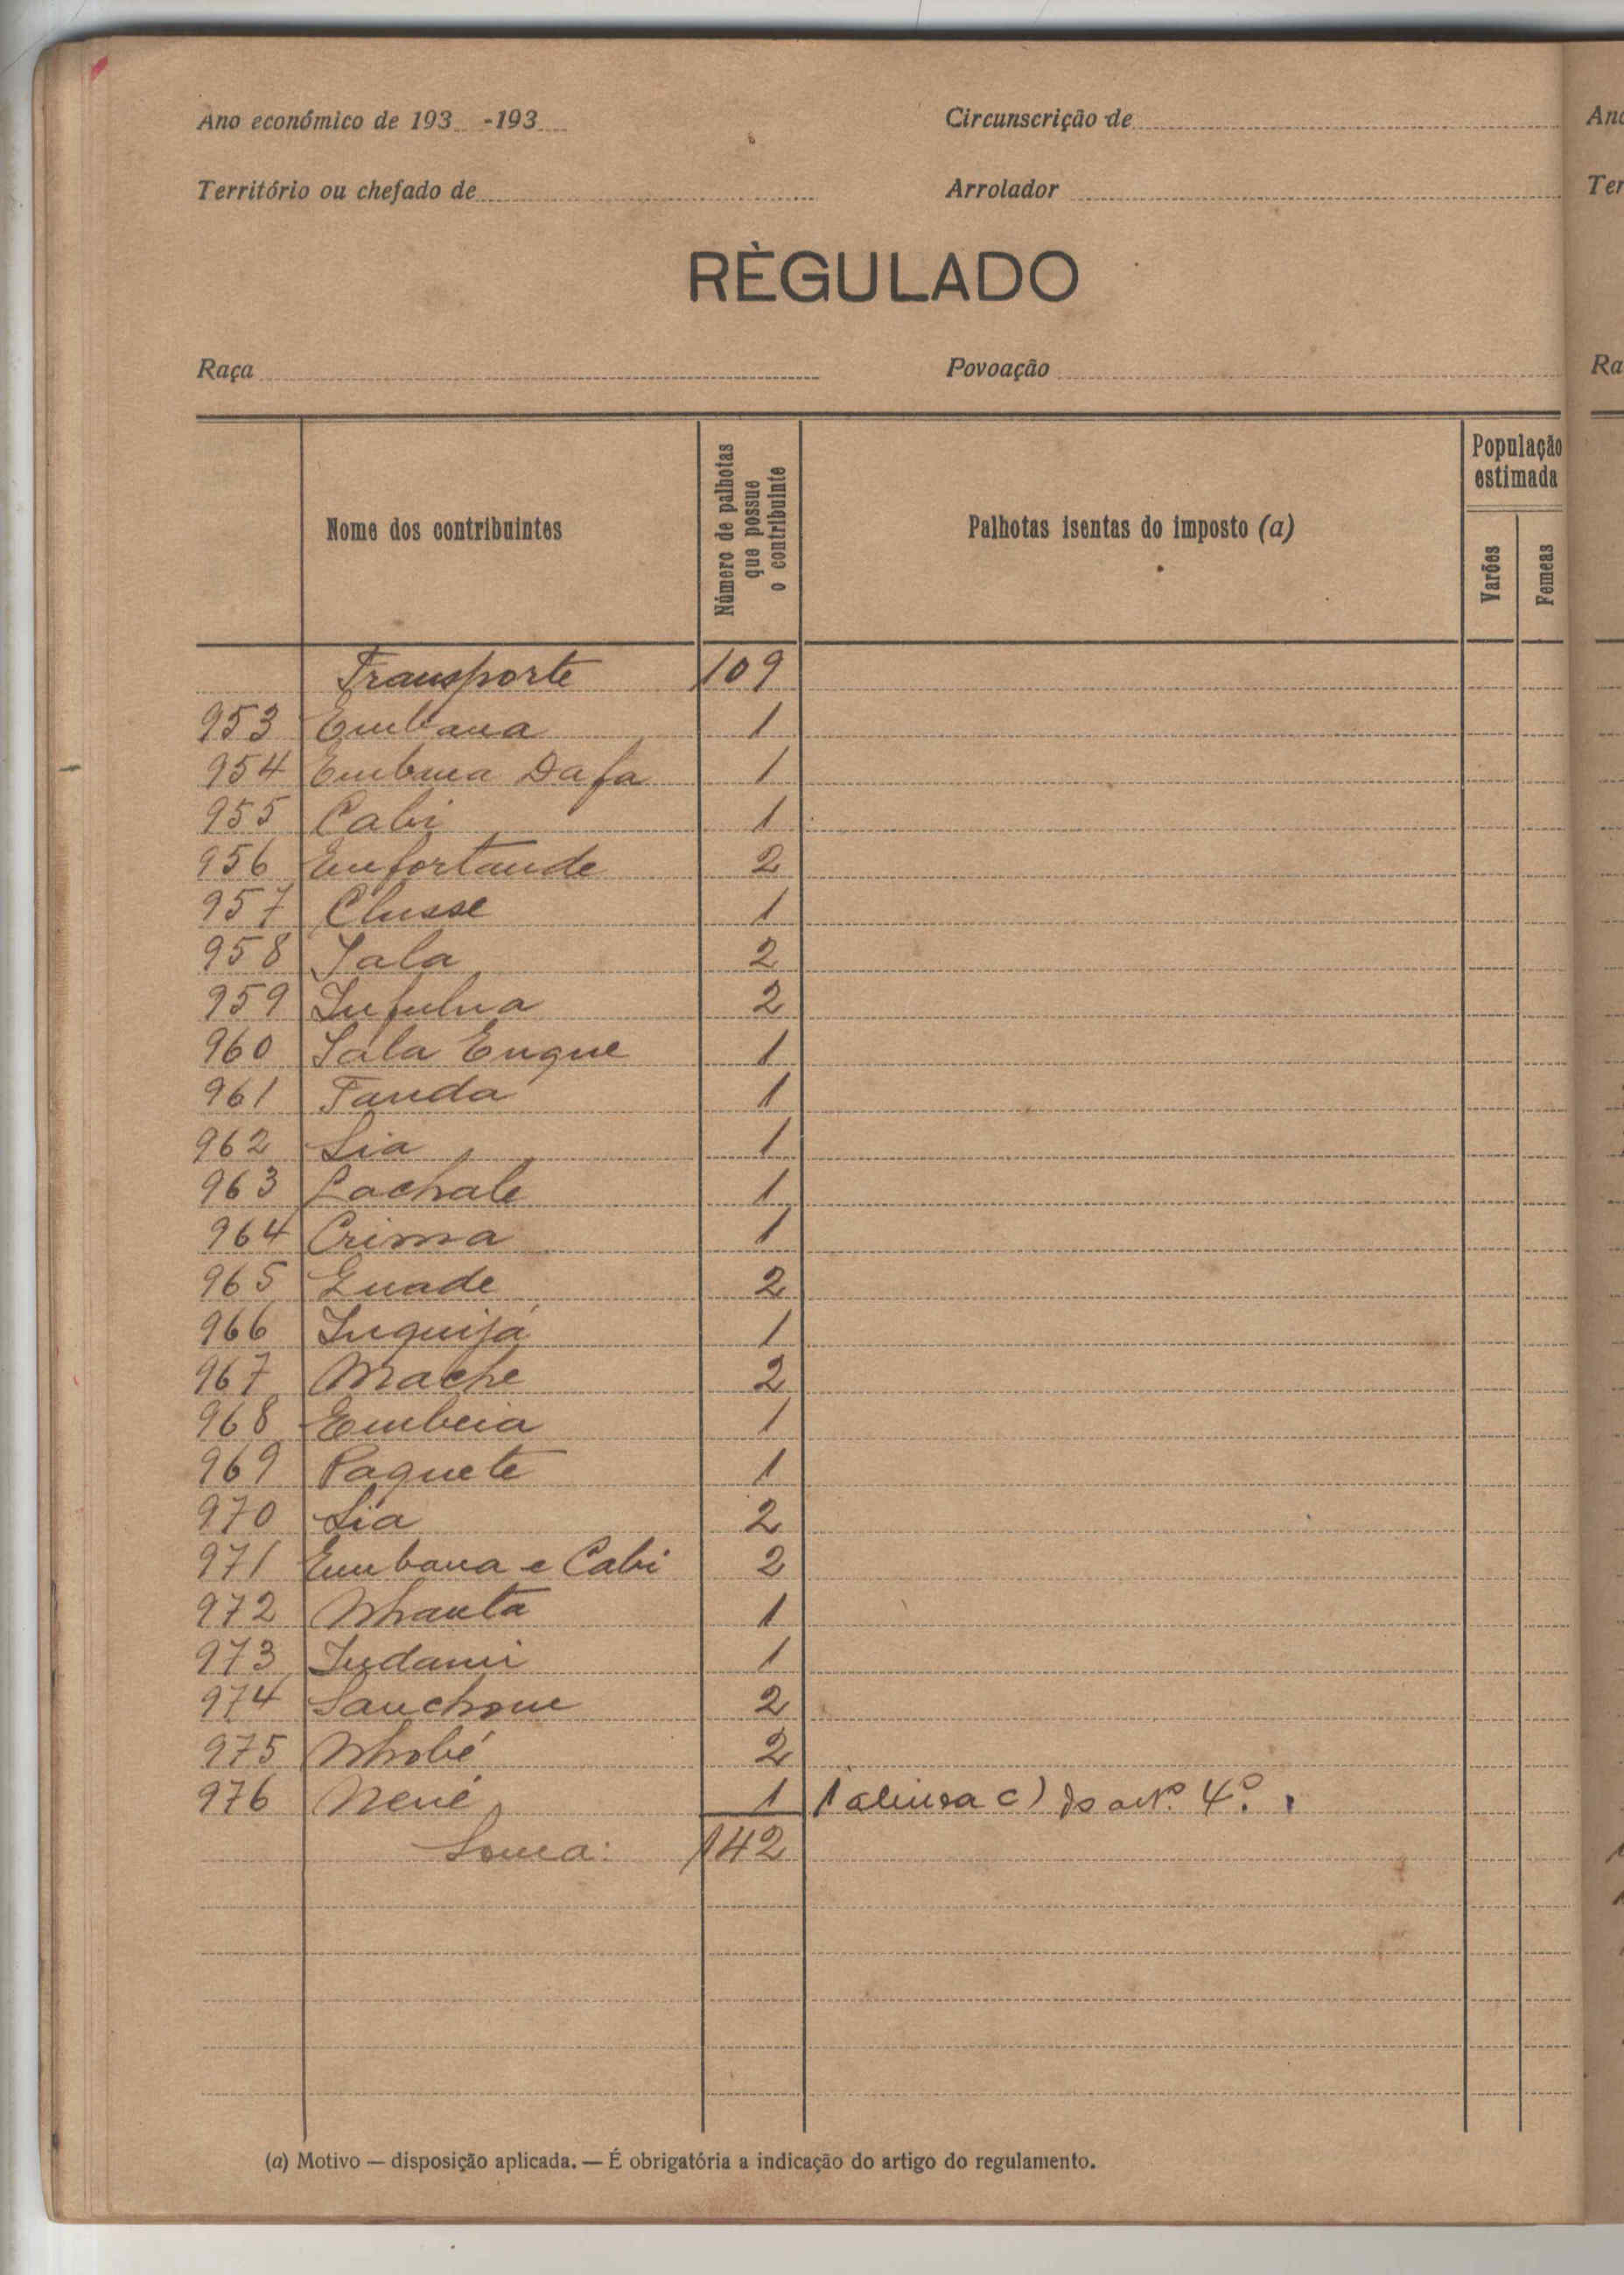 Ano económico de 193 -193
Circunscrição de
Território ou chefado de
Arrolador
RÈGULADO
Raça
Povoação
Nome dos contribuintes
Número de palhotas que possue o contribuinte
Palhotas isentas do imposto (a)
População estimada
Varões
Femeas
Transporte 109
953 Embana 1
954 Embana Dafa 1
955 Cabi 1
956 Enfortande 2
957 Clusse 1
958 Sala 2
959 2
960 Sala Enque 1
961 Fanda 1
962 Lia 1
963 Lachale 1
964 Crima 1
965 Guade 2
966 Inquijá 1
967 Mache 2
968 Embeia 1
969 Paquete 1
970 Lia 2
971 Embana e Cabi 2
972 Nhanta 1
973 Indami 1
974 Sanchone 2
975 Nhobé 2
976 Nené 1 1 alinea c) do artº. 4º.
Soma: 142
(a) Motivo — disposição aplicada. — É obrigatória a indicação do artigo do regulamento.